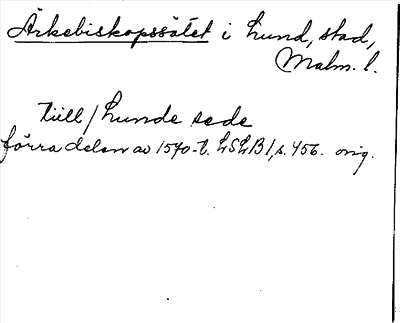 Ärkebiskopssätet i Lund, stad,
Malm. l.
till / Lunde sede
förra delen av 1570-t. LSLB I, s. 456. orig.